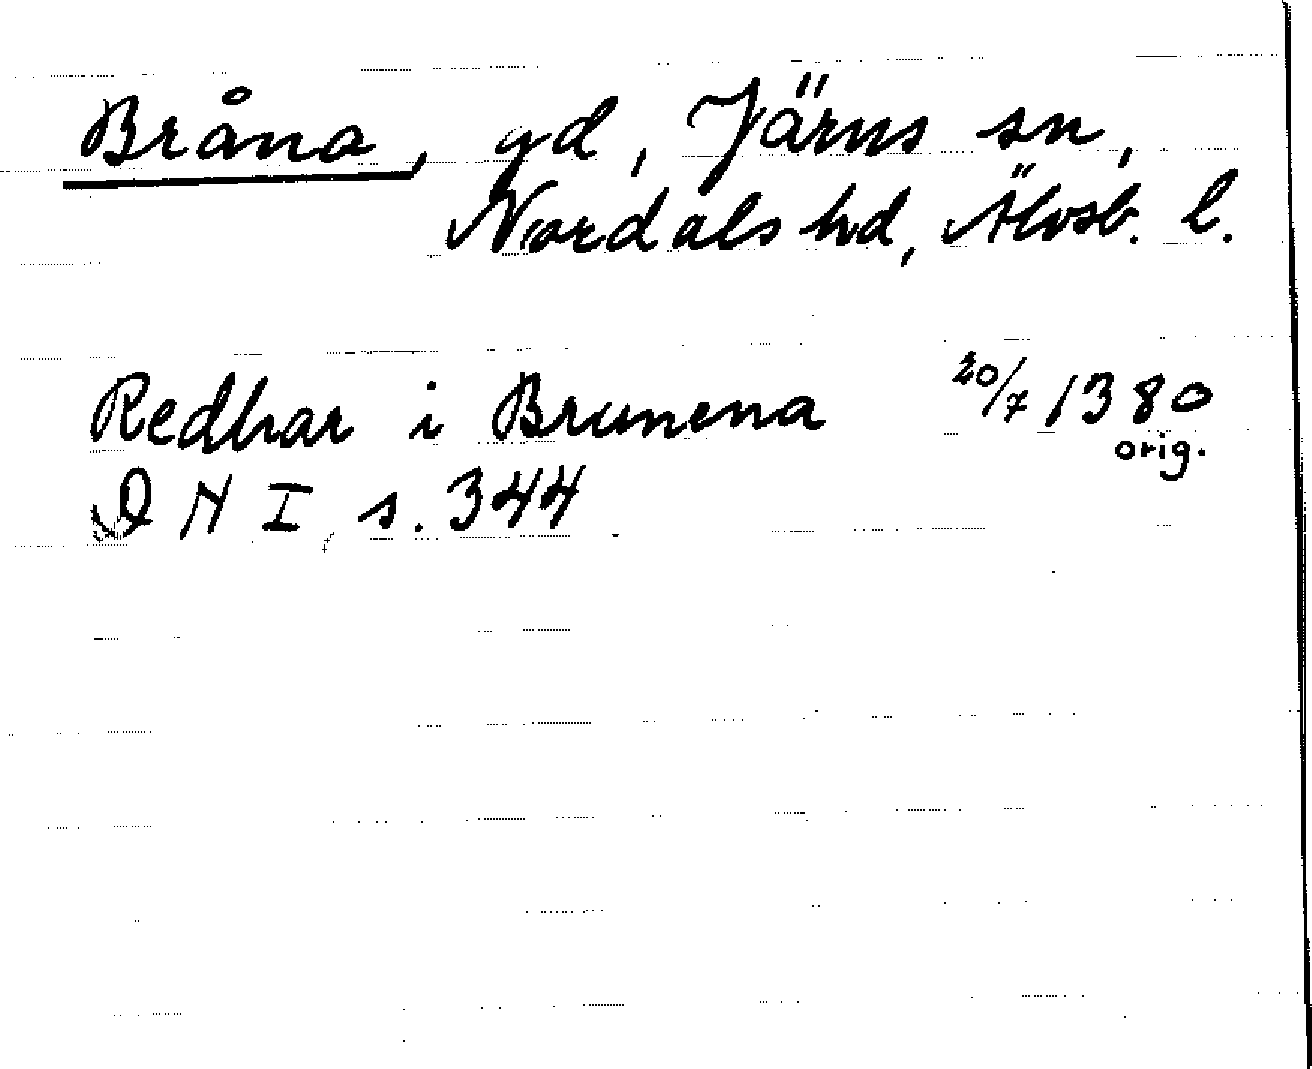 Bråna, gd, Järns sn,
Nordals hd, Älvsb. l.
Redhar i Brunena 20/7 1380
orig.
D N I, s. 344